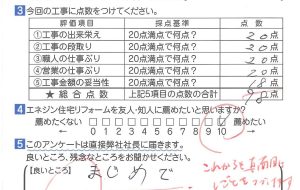 3 今回の工事に点数をつけてください。
評価項目 採点基準 点数
①工事の出来栄え 20点満点で何点? 20点
②工事の段取り 20点満点で何点? 20点
③職人の仕事ぶり 20点満点で何点? 20点
④営業の仕事ぶり 20点満点で何点? 20点
⑤工事金額の妥当性 20点満点で何点? 18点
★総合点数 上記5項目の点数の合計 98点
4 エネジン住宅リフォームを友人・知人に薦めたいと思いますか?
薦めたくない 薦めたい
0 1 2 3 4 5 6 7 8 9 10
5 このアンケートは直接弊社社長に届きます。
良いところ、残念なところをお聞かせください。
【良いところ】 まじめで
これからも真面目に